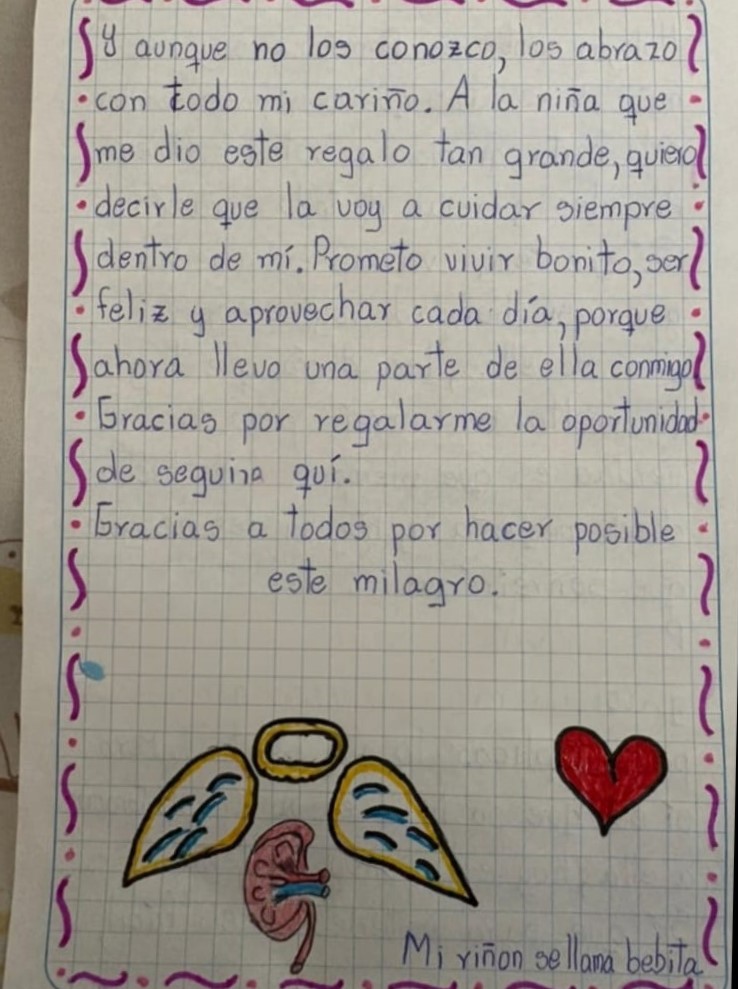 Y aunque no los conozco, los abrazo
con todo mi cariño. A la niña que
me dio este regalo tan grande, quiero
decirle que la voy a cuidar siempre
dentro de mí. Prometo vivir bonito, ser
feliz y aprovechar cada día, porque
ahora llevo una parte de ella conmigo
Gracias por regalarme la oportunidad
de seguira quí.
Gracias a todos por hacer posible
este milagro.
Mi riñon se llama bebita